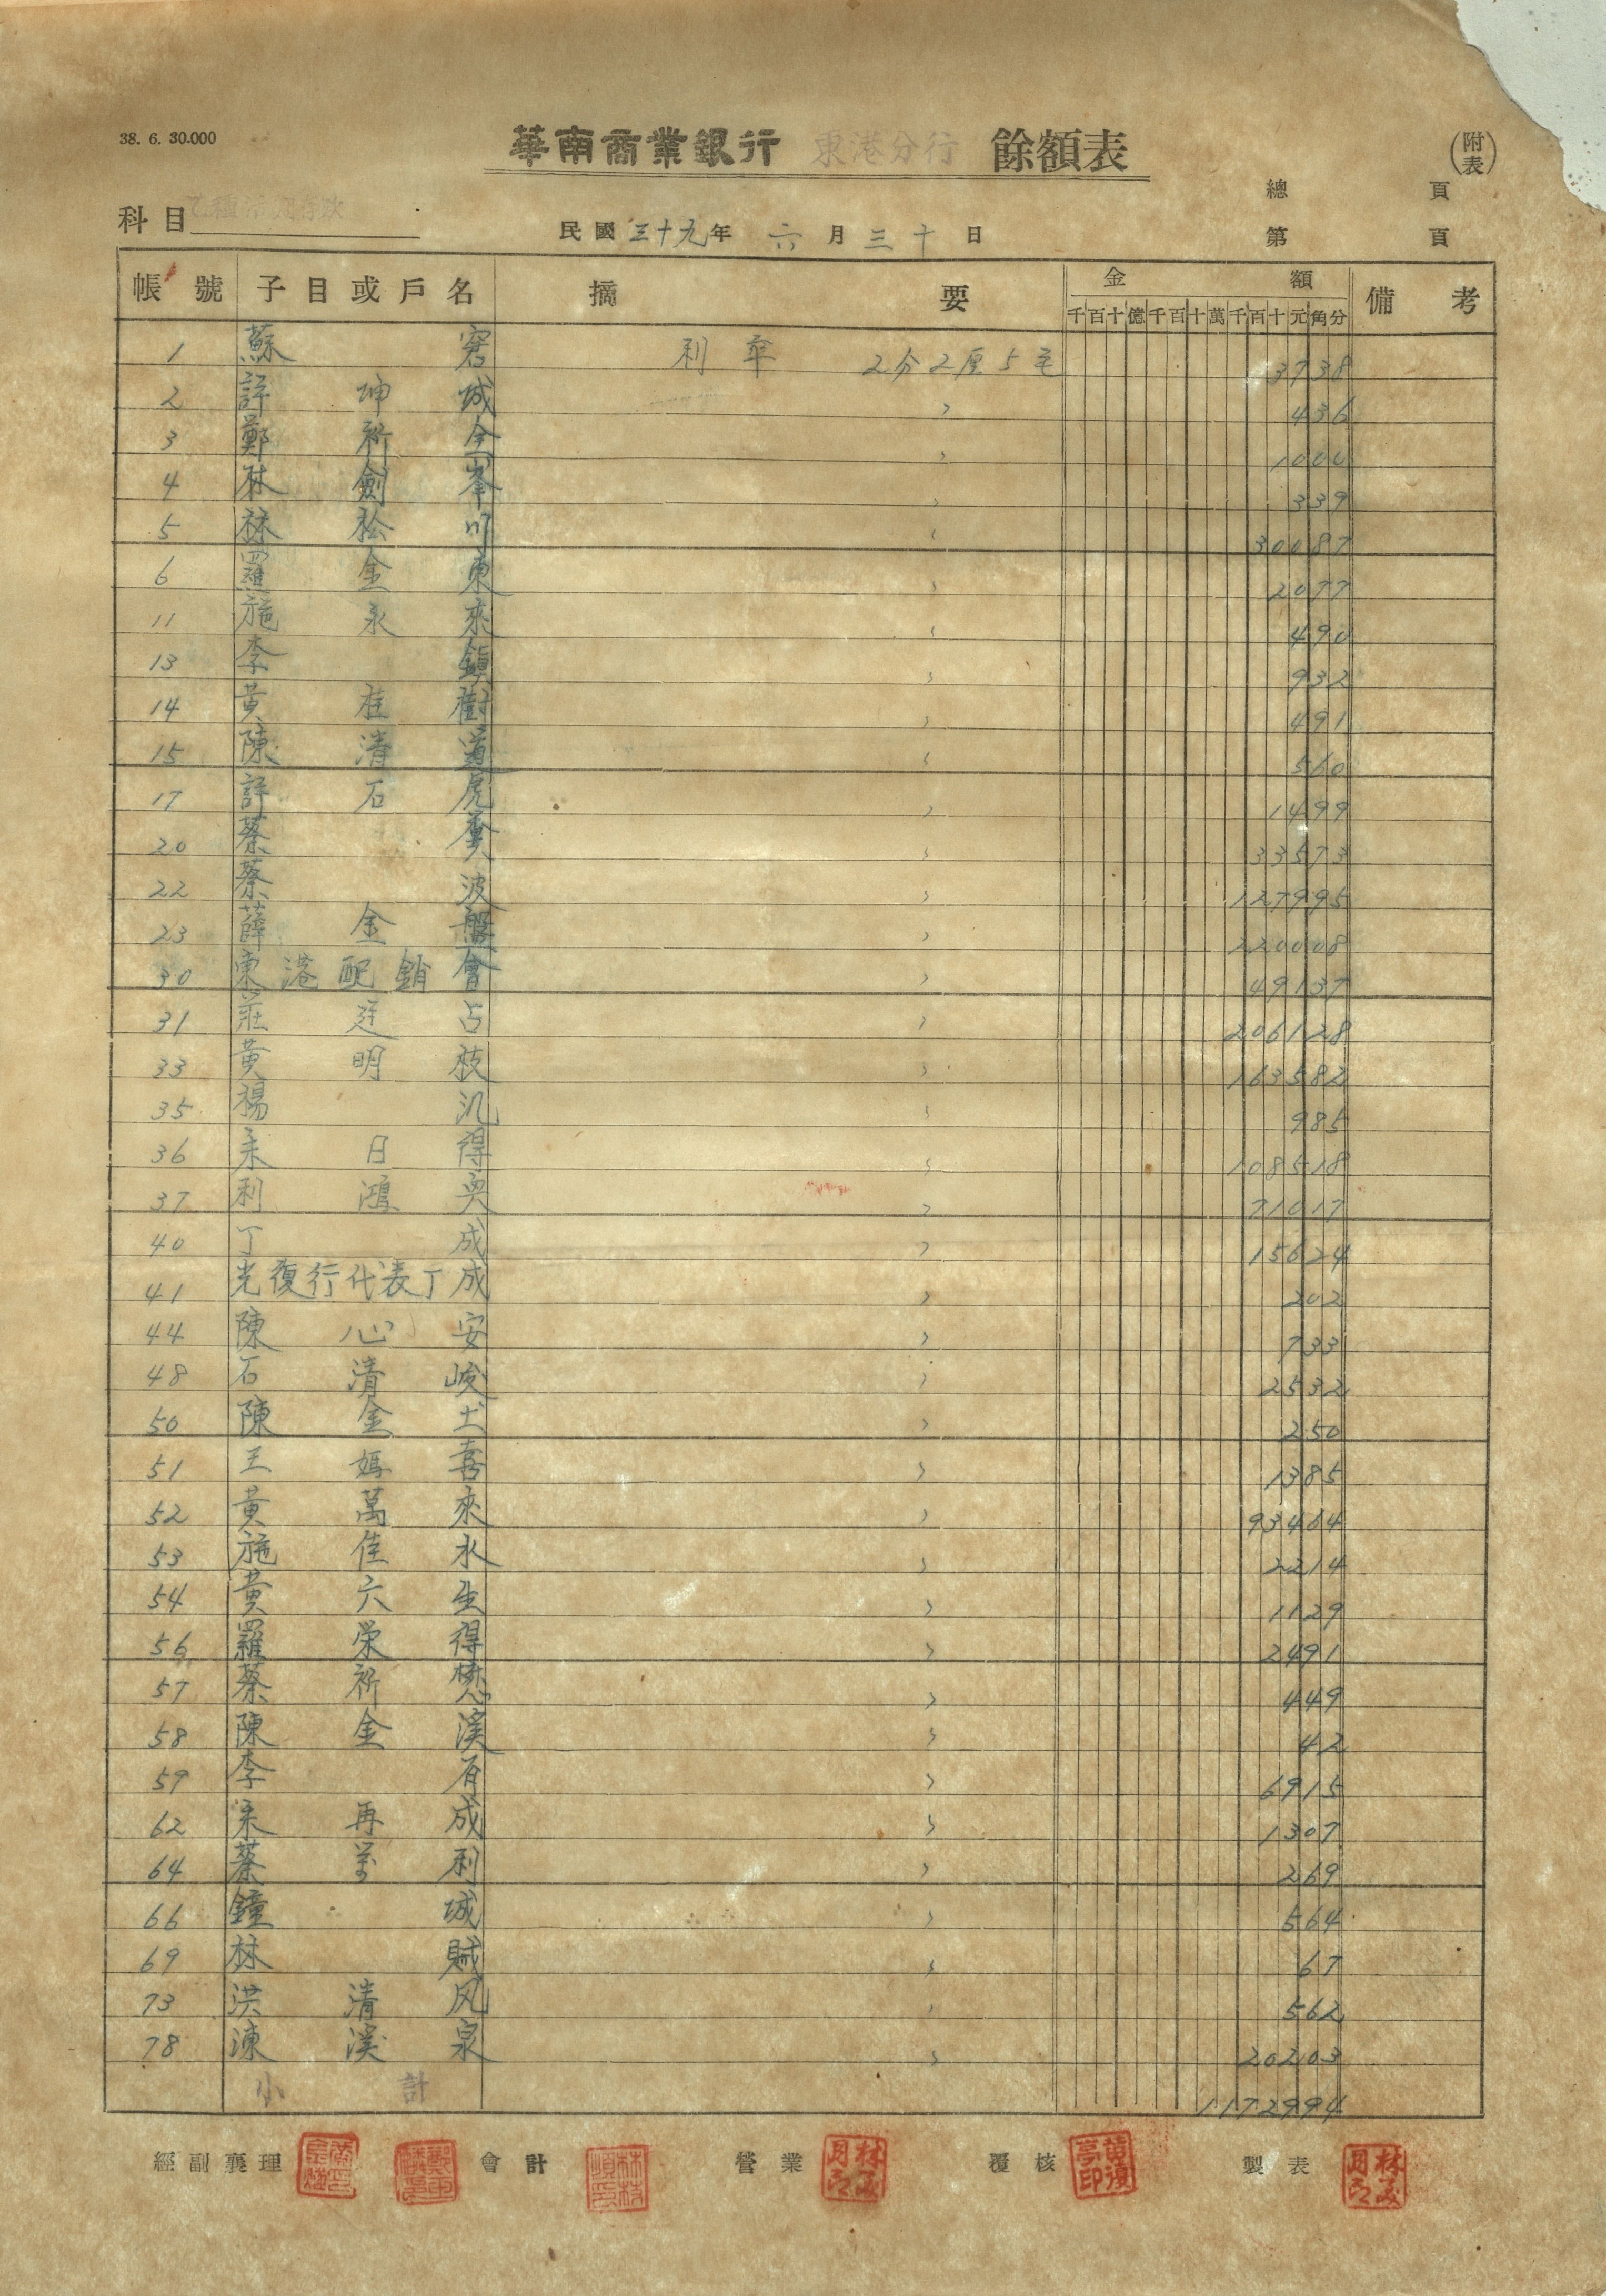 38. 6. 30.000
華南商業銀行 東港分行 餘額表
(附表)
總 頁
科目 乙種活期存款
民國三十九年 六 月 三十 日
第 頁
帳號 子目或戶名 摘要 金額 備考
千百十億千百十萬千百十元角分
1 蘇 窓 利率 2分2厘5毛 3738
2 許坤城 〃 436
3 鄭新全 〃 1000
4 林劍峯 〃 339
5 林松川 〃 30087
6 羅金東 〃 2077
11 施永來 〃 490
13 李 鎮 〃 932
14 黃桂樹 〃 491
15 陳清道 〃 560
17 許石虎 〃 1499
20 蔡 〃 33573
22 蔡 波 〃 127995
23 薛金盤 〃 220008
30 東港配銷會 〃 49137
31 莊廷占 〃 206128
33 黃明枝 〃 163582
35 楊 汎 〃 985
36 日得 〃 108518
37 利鴻 〃 71017
40 丁 成 〃 15624
41 光復行代表丁成 〃 202
44 陳心安 〃 733
48 石清峻 〃 2532
50 陳金土 〃 250
51 王媽喜 〃 1385
52 黃萬來 〃 93464
53 施佳水 〃 2214
54 黃六生 〃 1129
56 羅栄得 〃 2491
57 蔡新懋 〃 449
58 陳金溪 〃 42
59 李 有 〃 6915
62 再成 〃 1307
64 蔡万利 〃 269
66 鐘 城 〃 564
69 林 賊 〃 67
73 洪清风 〃 562
78 陳溪泉 〃 20203
小計 1172994
經副襄理 會計 營業 覆核 製表